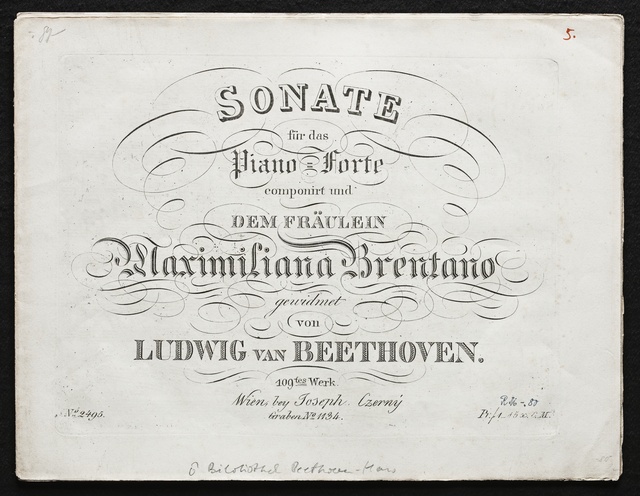 5.
SONATE
für das
Piano=Forte
componirt und
DEM FRÄULEIN
Maximiliana Brentano
gewidmet
von
LUDWIG VAN BEETHOVEN.
109tes Werk.
Wien, bey Joseph Czerný
Graben No. 1134.
No. 2495.
Bibliothek Beethoven-Haus